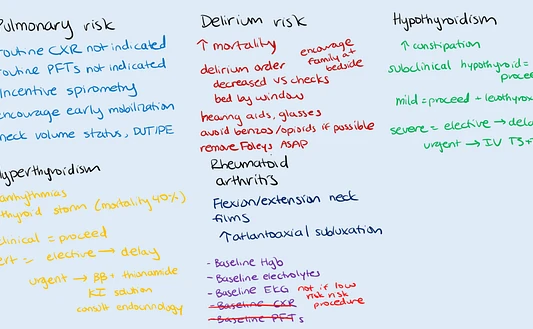 Pulmonary risk
routine CXR not indicated
routine PFTs not indicated
Incentive spirometry
encourage early mobilization
volume status, DVT/PE
Hyperthyroidism
arrhythmias
thyroid storm (mortality 40%)
= proceed
elective → delay
urgent → BB + thionamide
KI solution
consult endocrinology
Delirium risk
↑ mortality
encourage
family at
bedside
delirium order
decreased VS checks
bed by window
hearing aids, glasses
avoid benzos/opioids if possible
remove Foleys ASAP
Rheumatoid
arthritis
Flexion/extension neck
films
↑ atlantoaxial subluxation
- Baseline Hgb
- Baseline electrolytes
- Baseline EKG not if low
risk risk
procedure
- Baseline CXR
- Baseline PFTs
Hypothyroidism
↑ constipation
subclinical hypothyroid =
mild = proceed +
severe = elective →
urgent → IV